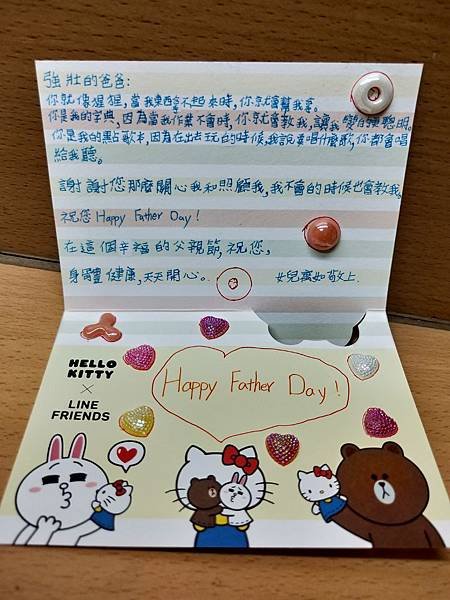 強壯的爸爸:
你就像猩猩,當我東西拿不起來時,你就會幫我拿。
你是我的字典,因為當我作業不會時,你就會教我,讓我變的更聰明。
你是我的點歌本,因為在出去玩的時候,我說要唱什麼歌,你都會唱
給我聽。
謝謝您那麼關心我和照顧我,我不會的時候也會教我。
祝您Happy Father Day!
在這個幸福的父親節,祝您,
身體健康,天天開心。
女兒 如敬上
HELLO
KITTY
×
LINE
FRIENDS
Happy Father Day!